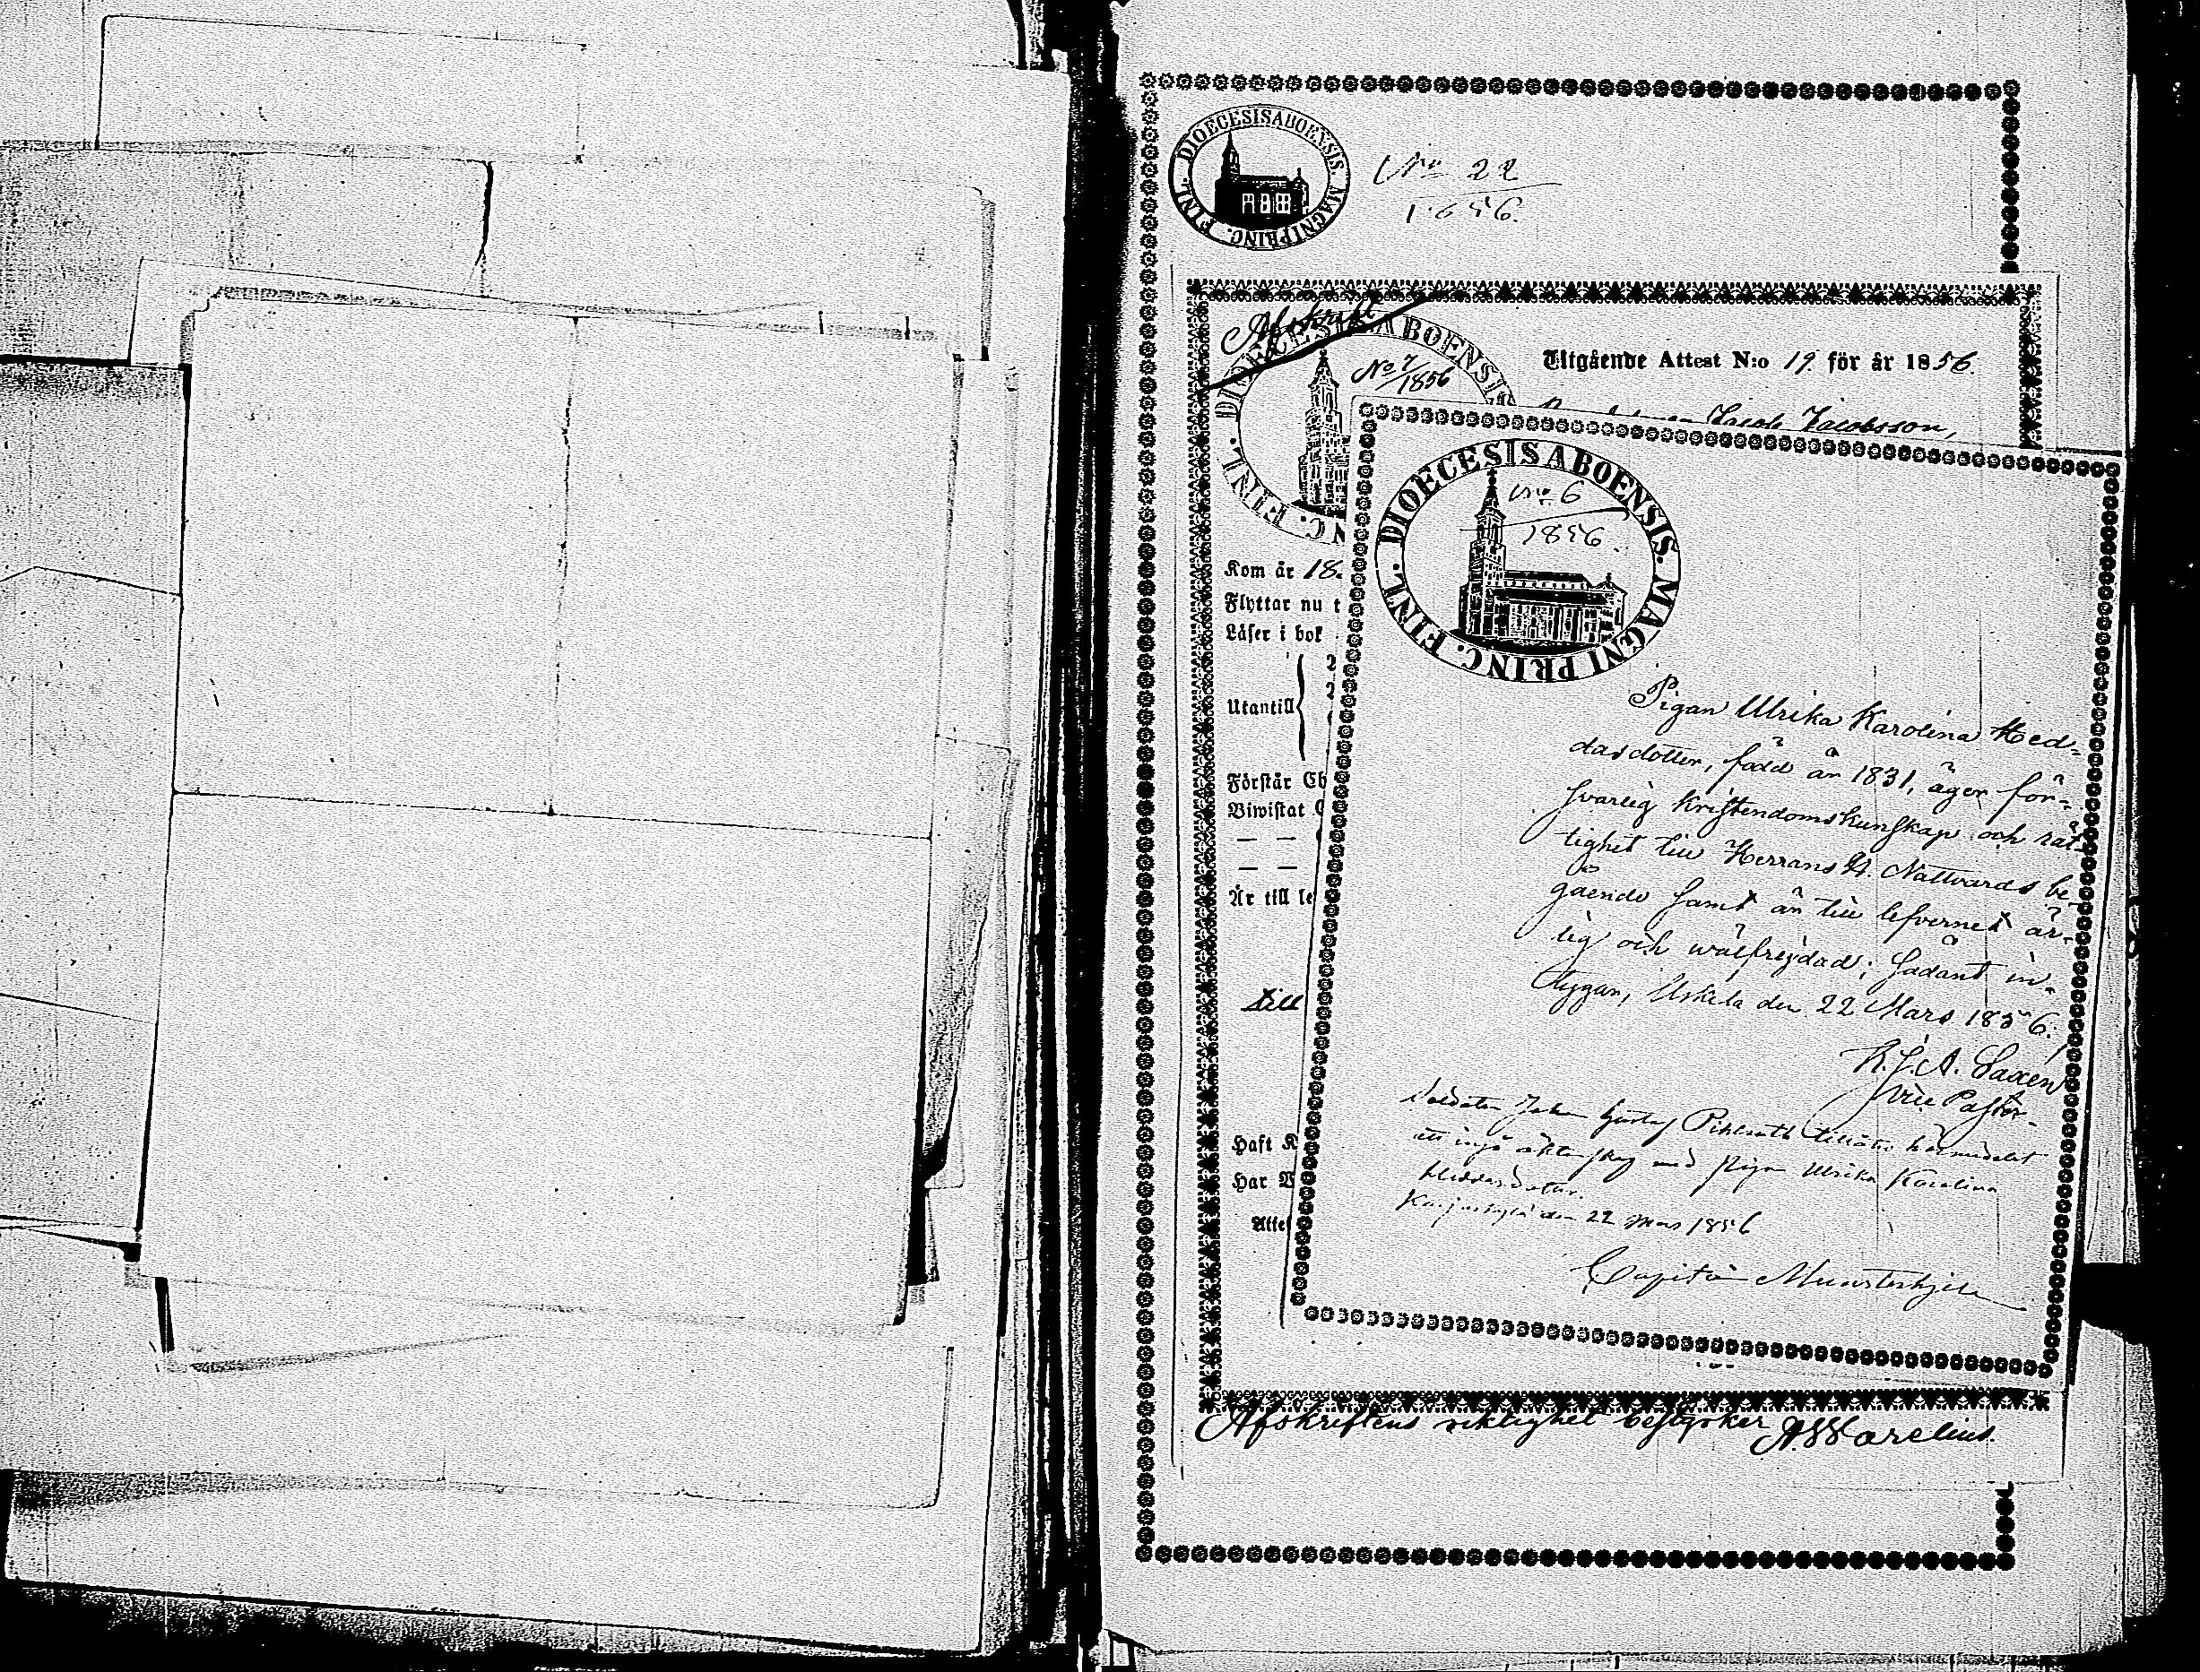 DIOECESIS ABOENSIS. MAGNI PRINC. FINL.
No 22
1856.
Afskrift
DIOECESIS ABOENSI
NC. FINL.
No 7/1856
Utgående Attest N:o 19. för år 1856.
Jacob Jacobsson,
Kom år 18
Flyttar nu t
Läser i bok
Utantill
Förstår Ch
Biwistat
— —
— —
Är till le
till
Haft K
Har V
Attes
DIOECESIS ABOENSIS. MAGNI PRINC. FINL.
No 6
1856.
Pigan Ulrika Karolina Hed-
dasdotter, född år 1831, äger för-
svarlig kristendomskunskap och rät-
tighet till Herrans H. Nattvards be-
gående samt är till lefvernet är-
lig och wälfrejdad; sådant in-
tygar, Uskela den 22 Mars 1856.
K. J. A. Saxen
Vice Pastor.
Soldaten Johan Gustaf Pihlrooth tillåtes härmedelst
att ingå äktenskap med pigan Ulrika Karolina
Heddasdotter.
den 22 Mars 1856
Capitain Munsterhjelm
Afskriftens riktighet bestyrker A. Warelius.